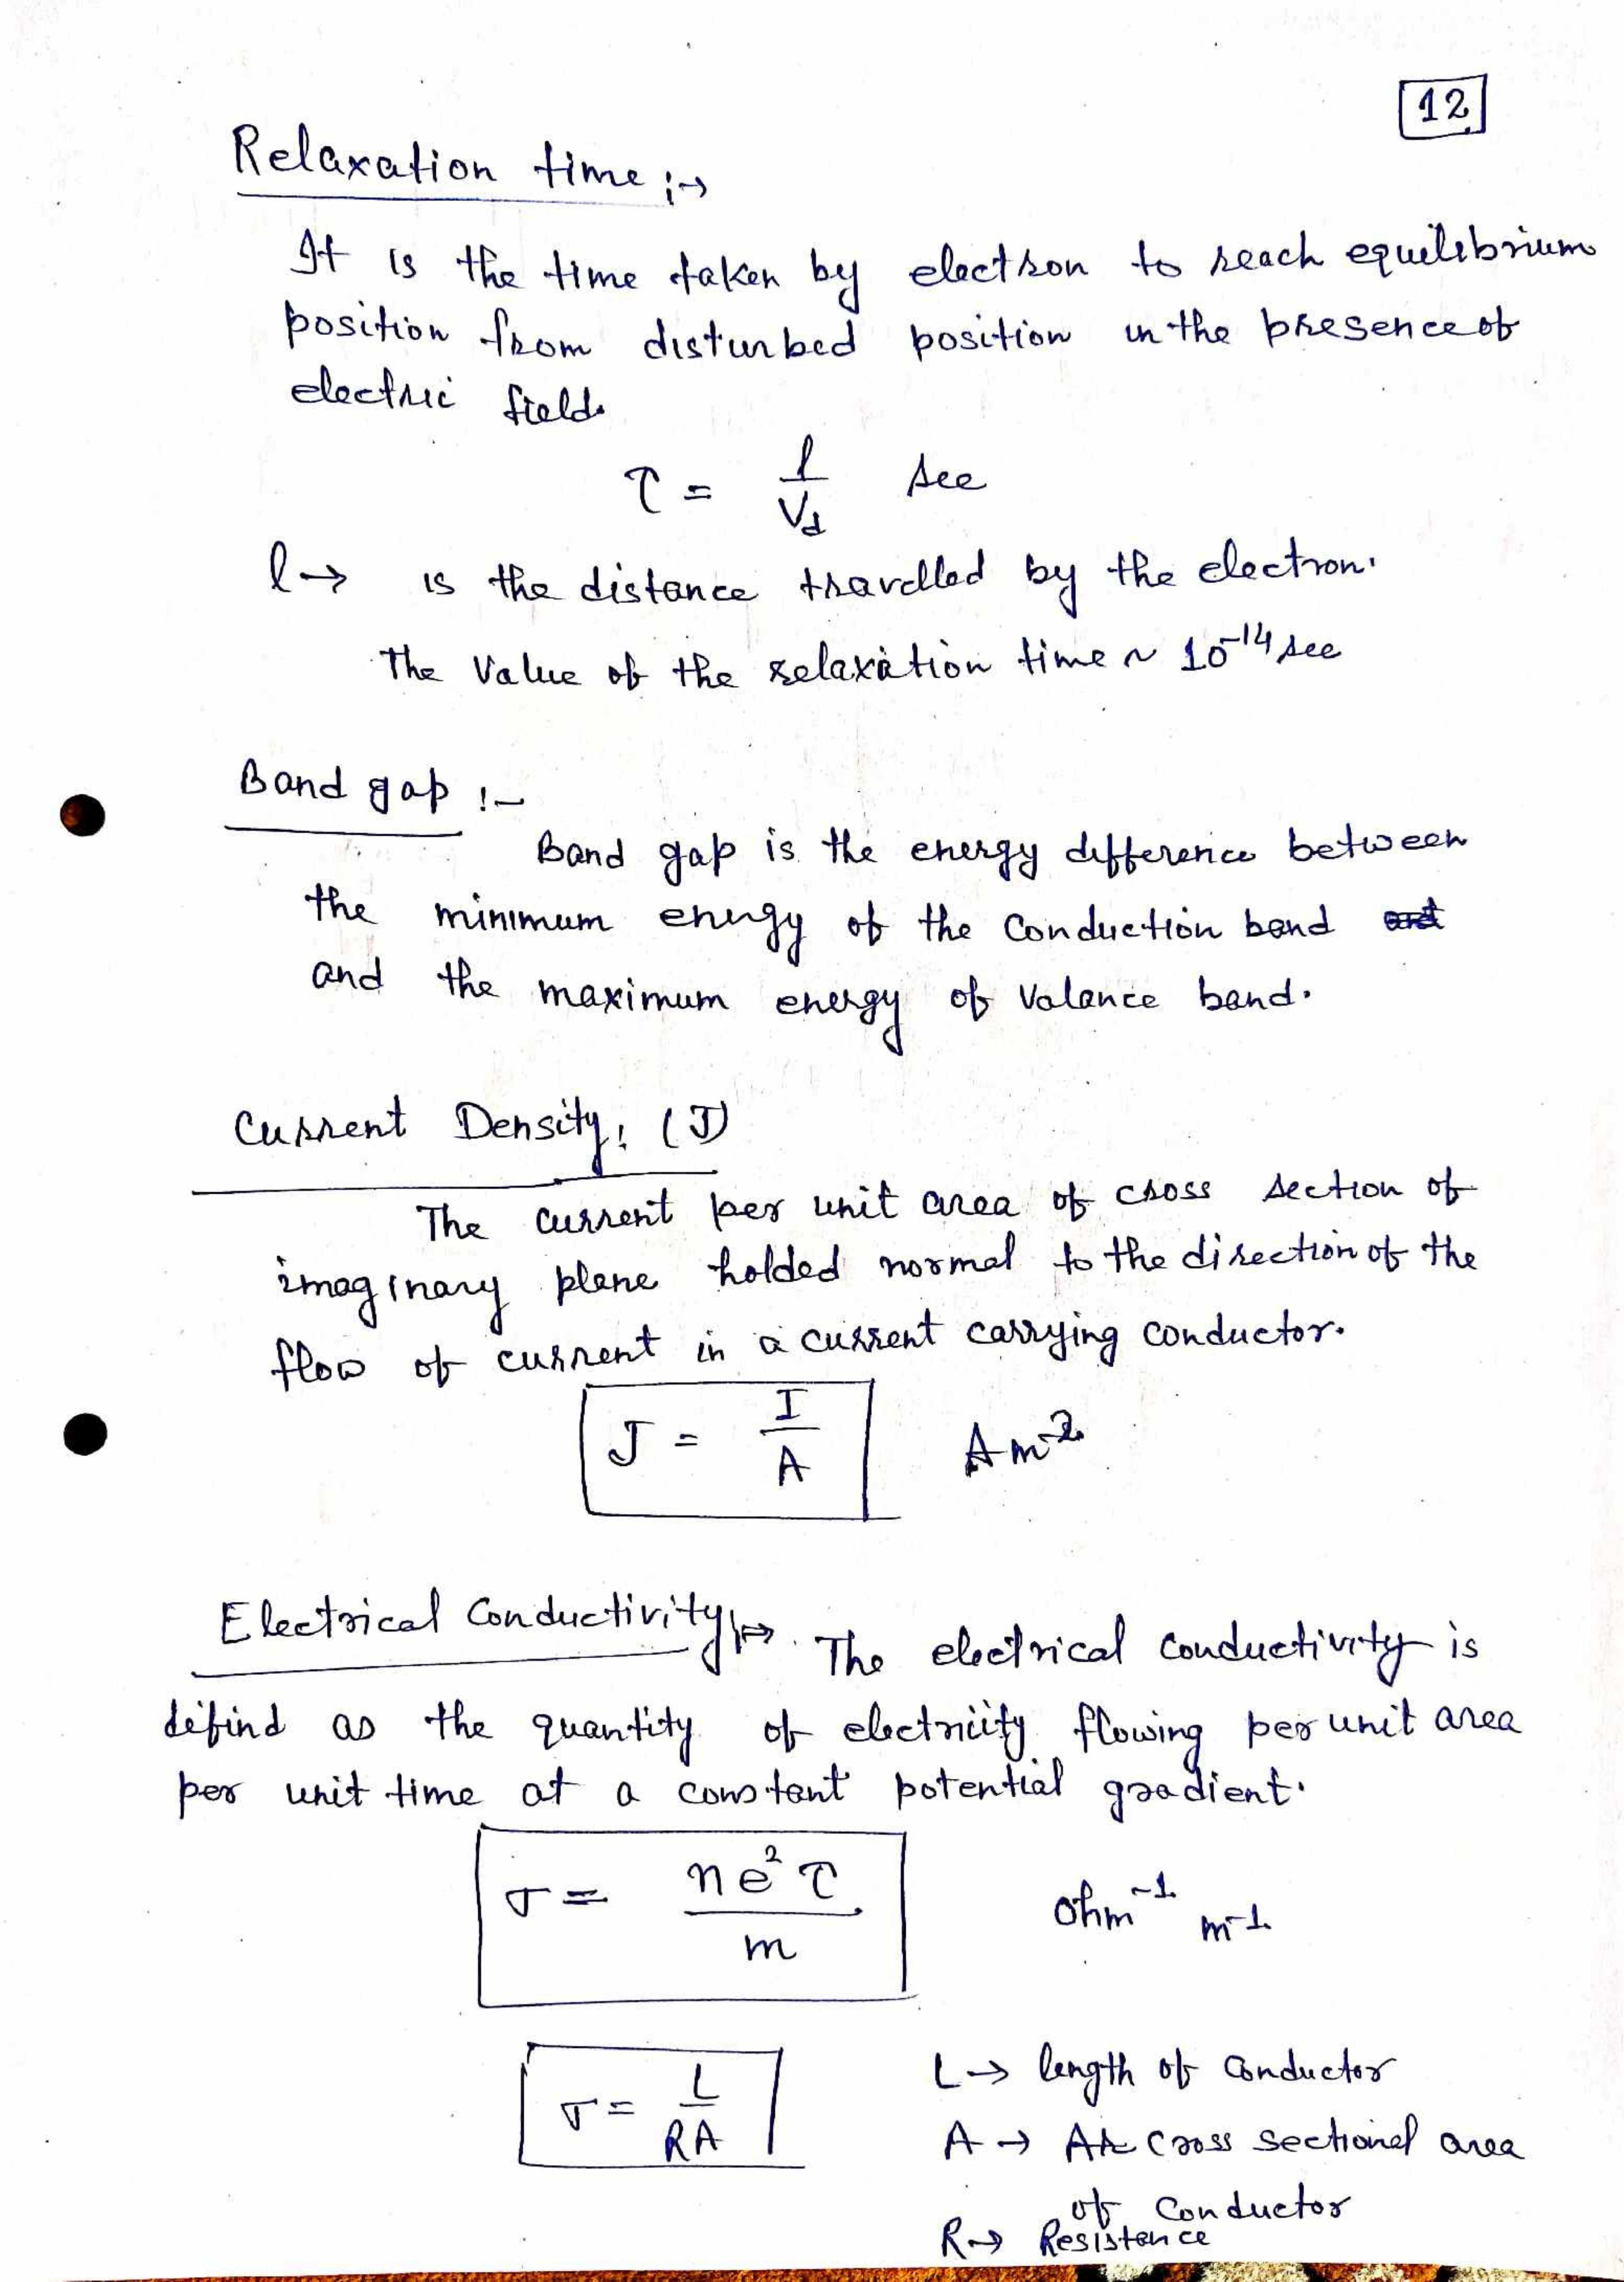 12
Relaxation time :→
It is the time taken by electron to reach equilibrium
position from disturbed position in the presence of
electric field.
τ = l/Vd sec
l → is the distance travelled by the electron.
The value of the relaxation time ~ 10⁻¹⁴ sec
Band gap :-
Band gap is the energy difference between
the minimum energy of the conduction band and
and the maximum energy of valance band.
Current Density: (J)
The current per unit area of cross section of
imaginary plane holded normal to the direction of the
flow of current in a current carrying conductor.
J = I/A Am⁻²
Electrical Conductivity:→ The electrical conductivity is
difind as the quantity of electricity flowing per unit area
per unit time at a constant potential gradient.
σ = ne²τ/m ohm⁻¹ m⁻¹
σ = L/RA L → length of conductor
A → cross sectional area
of conductor
R → Resistence